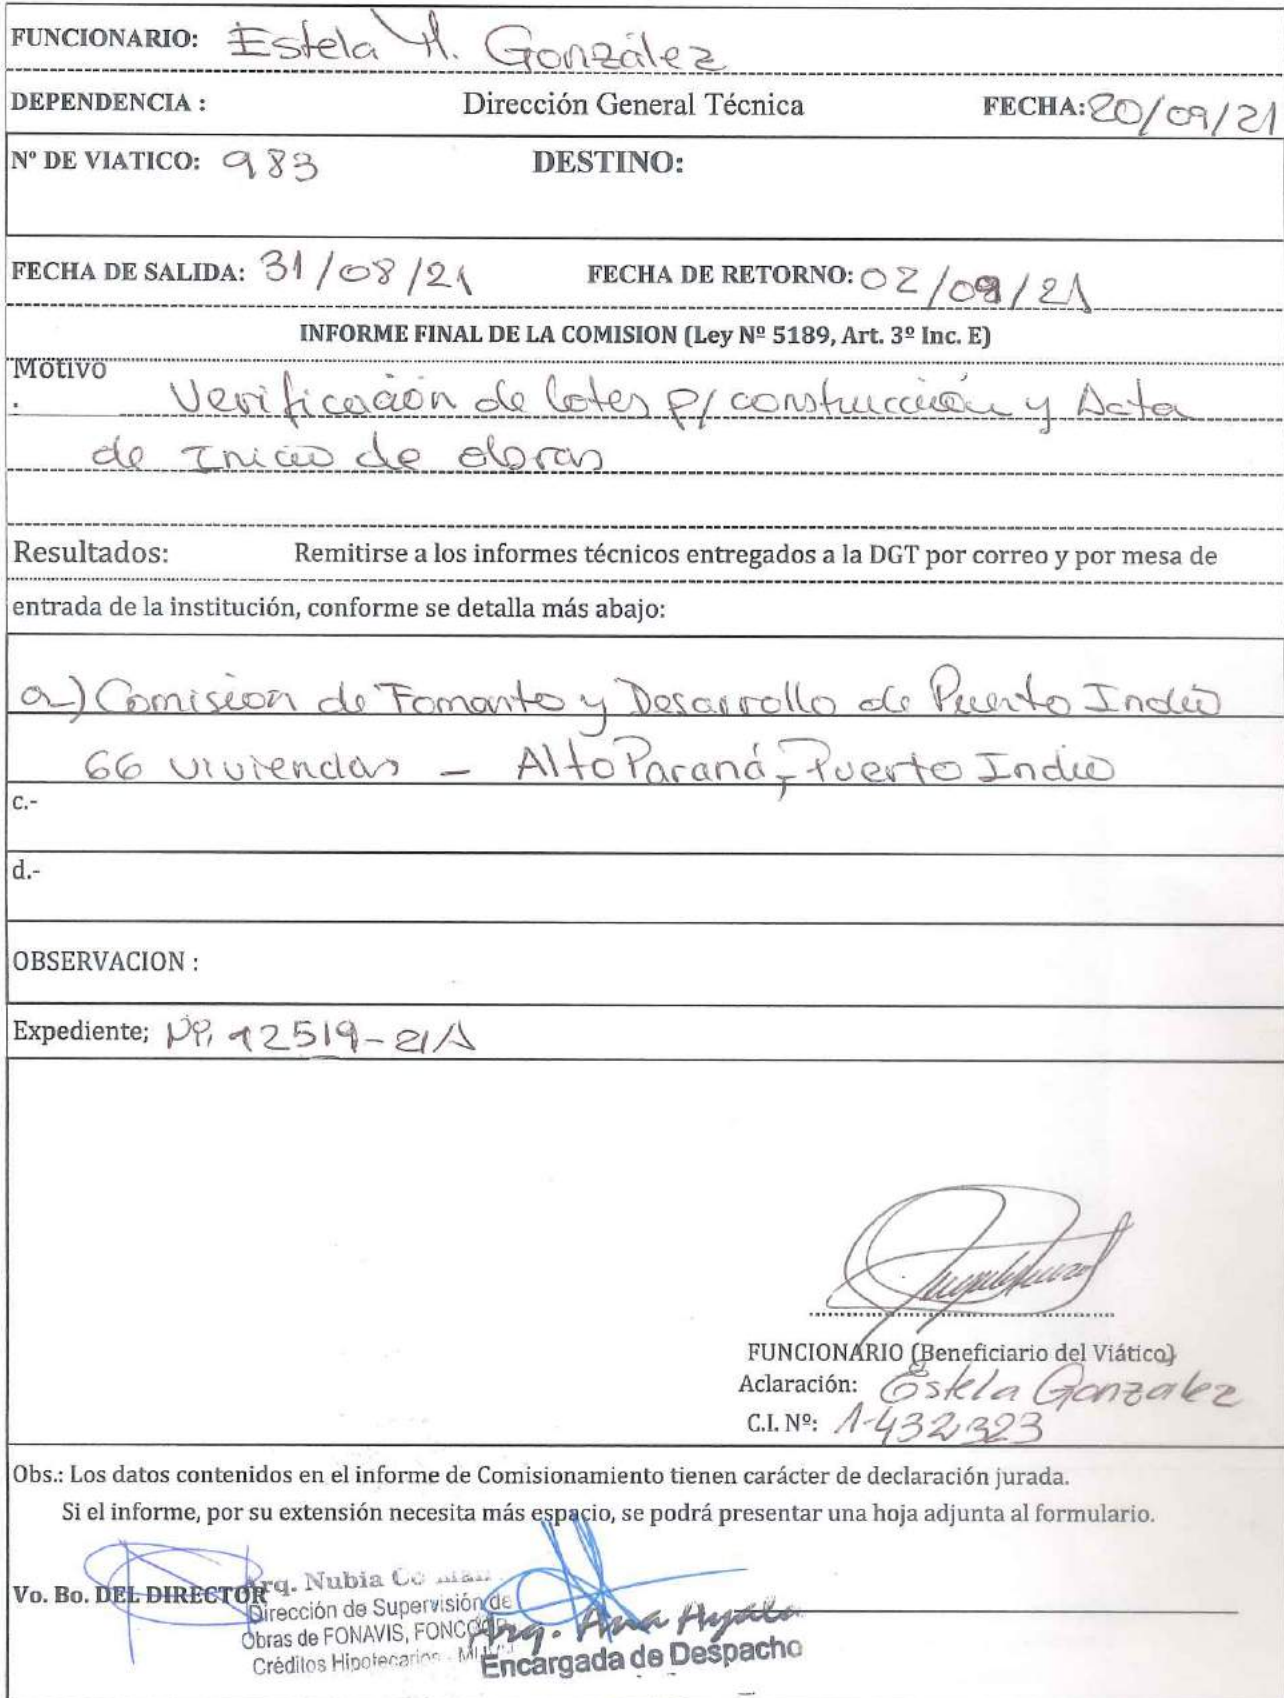 FUNCIONARIO: Estela H. González
DEPENDENCIA : Dirección General Técnica FECHA: 20/09/21
Nº DE VIATICO: 983 DESTINO:
FECHA DE SALIDA: 31/08/21 FECHA DE RETORNO: 02/09/21
INFORME FINAL DE LA COMISION (Ley Nº 5189, Art. 3º Inc. E)
Motivo
. Verificación de lotes p/ construcción y Acta
de Inicio de obras
Resultados: Remitirse a los informes técnicos entregados a la DGT por correo y por mesa de
entrada de la institución, conforme se detalla más abajo:
a-) Comision de Fomento y Desarrollo de Puerto Indio
66 viviendas - Alto Paraná, Puerto Indio
c.-
d.-
OBSERVACION :
Expediente; Nº. 12519-21
FUNCIONARIO (Beneficiario del Viático)
Aclaración: Estela Gonzalez
C.I. Nº: 1-432,323
Obs.: Los datos contenidos en el informe de Comisionamiento tienen carácter de declaración jurada.
Si el informe, por su extensión necesita más espacio, se podrá presentar una hoja adjunta al formulario.
Vo. Bo. DEL DIRECTOR
Arq. Nubia
Dirección de Supervisión de
Obras de FONAVIS,
Créditos Hipotecarios
Arq. Ana Ayala
Encargada de Despacho